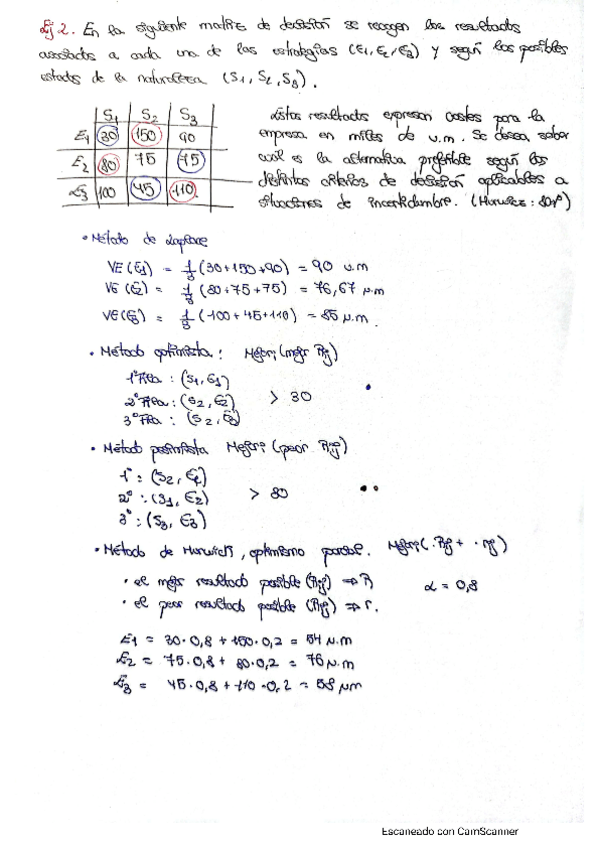 Ej 2. En la siguiente matriz de decisión se recogen los resultados
asociados a cada una de las estrategias (E1, E2, E3) y según los posibles
estados de la naturaleza (S1, S2, S3).
S1 S2 S3
E1 30 150 90
E2 80 75 75
E3 100 45 110
Estos resultados expresan costes para la
empresa en miles de u.m. Se desea saber
cual es la alternativa preferible según los
distintos criterios de decisión aplicables a
situaciones de incertidumbre. (Hurwicz: 80%)
• Método de Laplace
VE(E1) = 1/3 (30+150+90) = 90 u.m
VE(E2) = 1/3 (80+75+75) = 76,67 u.m
VE(E3) = 1/3 (100+45+110) = 85 u.m.
• Método optimista: Mejor i (mejor Rij)
1ª Fila: (S1, E1)
2ª Fila: (S2, E2) > 30
3ª Fila: (S2, E3)
• Método pesimista Mejor i (peor Rij)
1ª: (S2, E1)
2ª: (S1, E2) > 80
3ª: (S3, E3)
• Método de Hurwicz, optimismo parcial. Mejor i (
• el mejor resultado posible (Rij) ⇒ R
α = 0,8
• el peor resultado posible (Rij) ⇒ r.
E1 = 30·0,8 + 150·0,2 = 54 u.m
E2 = 75·0,8 + 80·0,2 = 76 u.m
E3 = 45·0,8 + 110·0,2 = 58 um
Escaneado con CamScanner